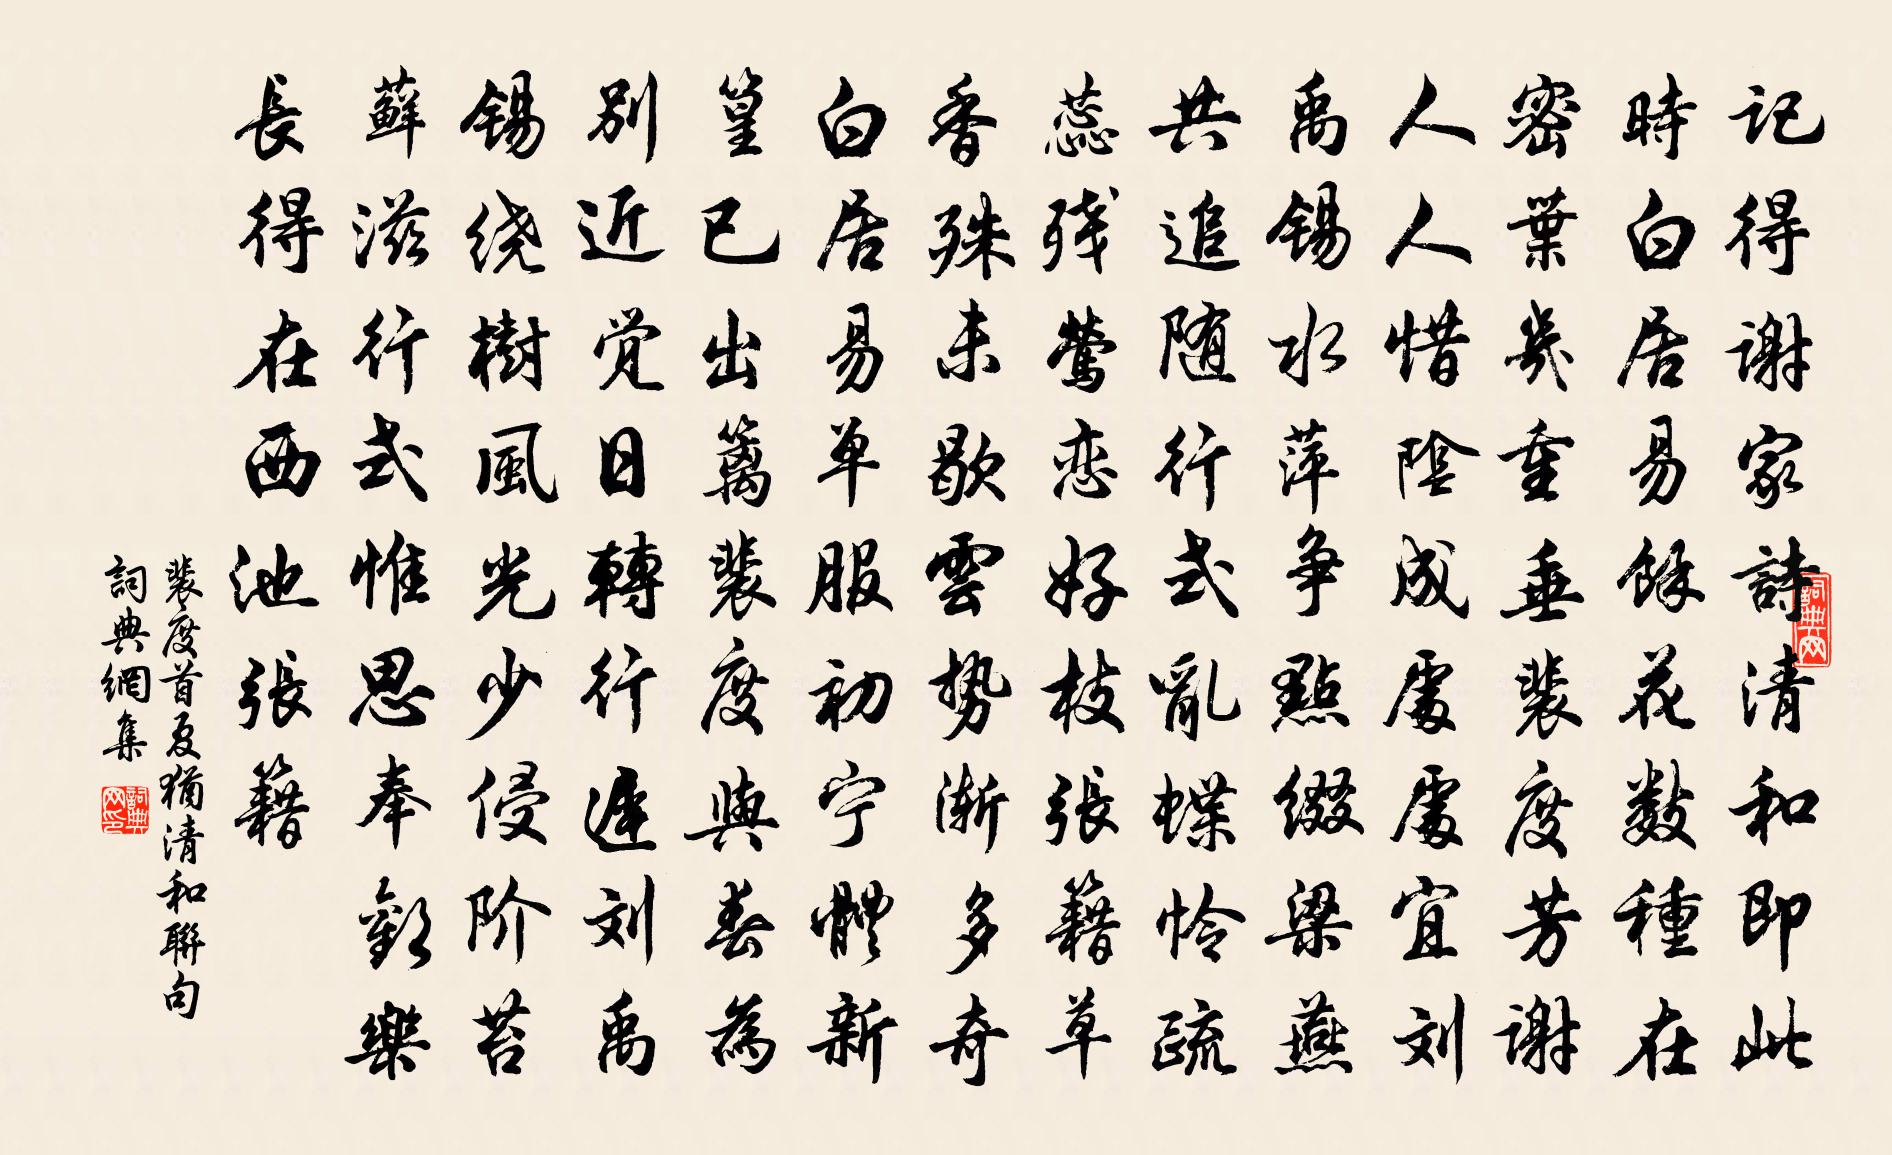 記得謝家詩清和即此
時白居易餘花数種在
密葉幾重垂裴度芳謝
人人惜陰成處處宜刘
禹锡水萍争點缀梁燕
共追随行式亂蝶怜疏
蕊残莺恋好枝張籍草
香殊未歇雲势渐多奇
白居易单服初宁體新
篁已出篱裴度與春為
别近觉日轉行遲刘禹
锡绕樹風光少侵阶苔
蘚滋行式惟思奉歡樂
長得在西池張籍
裴度首夏猶清和聯句
詞典網集
詞典网